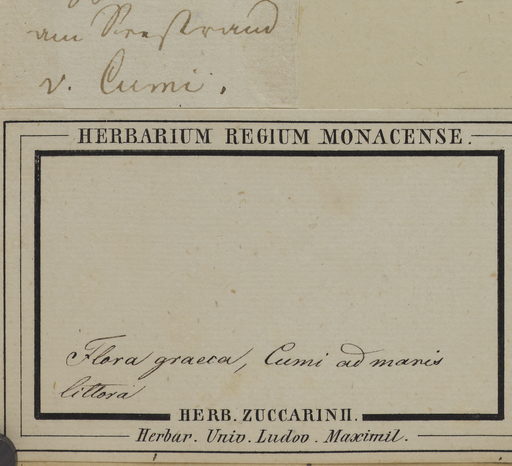 am Seestrand
v. Cumi.
HERBARIUM REGIUM MONACENSE.
Flora graeca, Cumi ad maris
littora
HERB. ZUCCARINII.
Herbar. Univ. Ludov. Maximil.